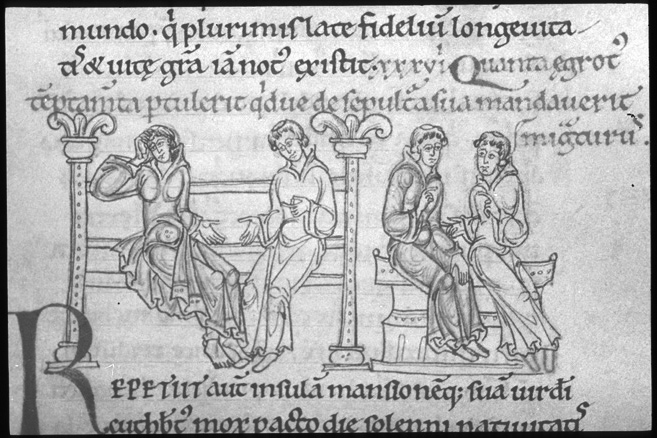 mundo. qͥ plurimis late fideliū longeuita-
tis̛ & uitę gr̄a iā not᾿ existit. xxxvi Quanta ęgrot᾿
tēptam̄ta ꝑtulerit qͥdue de sepultᷓa sua mandauerit
migᷓturus.
REPETIIT aut̄ insulā mansionēq; suā uir dn̄i
cuthbt᾿ mox pacto die solenni natiuitatis